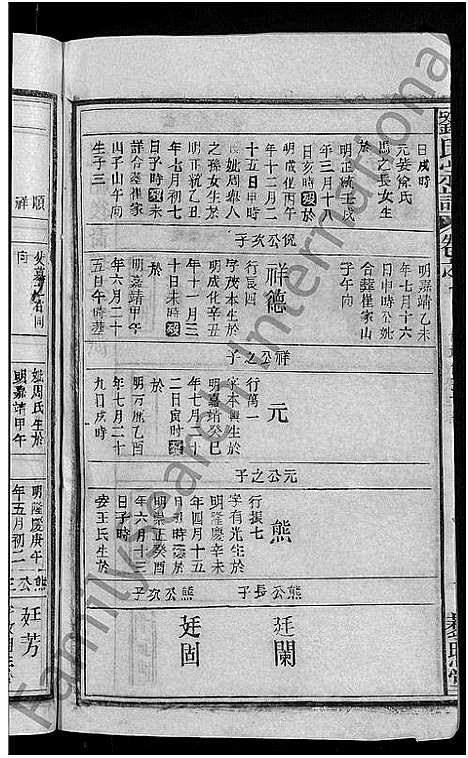 日戌時
元娶徐氏
爲之長女生
於
明正統壬戌
年三月十八
日亥時歿於
明成化丙午
年十二月二
十五日申時
妣周
之孫女生於
明正統乙丑
年七月初七
日子時歿未
詳合葬崔家
山子山午向
生子三
明嘉靖乙未
年七月十六
日申時公妣
合葬崔家山
子午向
侃公次子
祥德
行良四
字茂本生於
明成化辛丑
年十一月三
十日未時歿
於
明嘉靖甲午
年六月二十
五日午時葬
祥公之子
元
行萬一
字本興生於
明嘉靖癸巳
年七月二十
二日寅時歿
於
明万曆乙酉
年七月二十
九日戌時
元公之子
熊
行振七
字有光生於
明隆慶辛未
年四月十五
日時歿於
明崇正癸酉
年六月十三
日子時
娶王氏生於
熊公長子
廷闌
熊公次子
廷固
順
祥
向
妣周氏生於
明嘉靖甲午
明隆慶庚午
年五月初二
熊公三
廷芳
劉氏宗譜
FamilySearch International